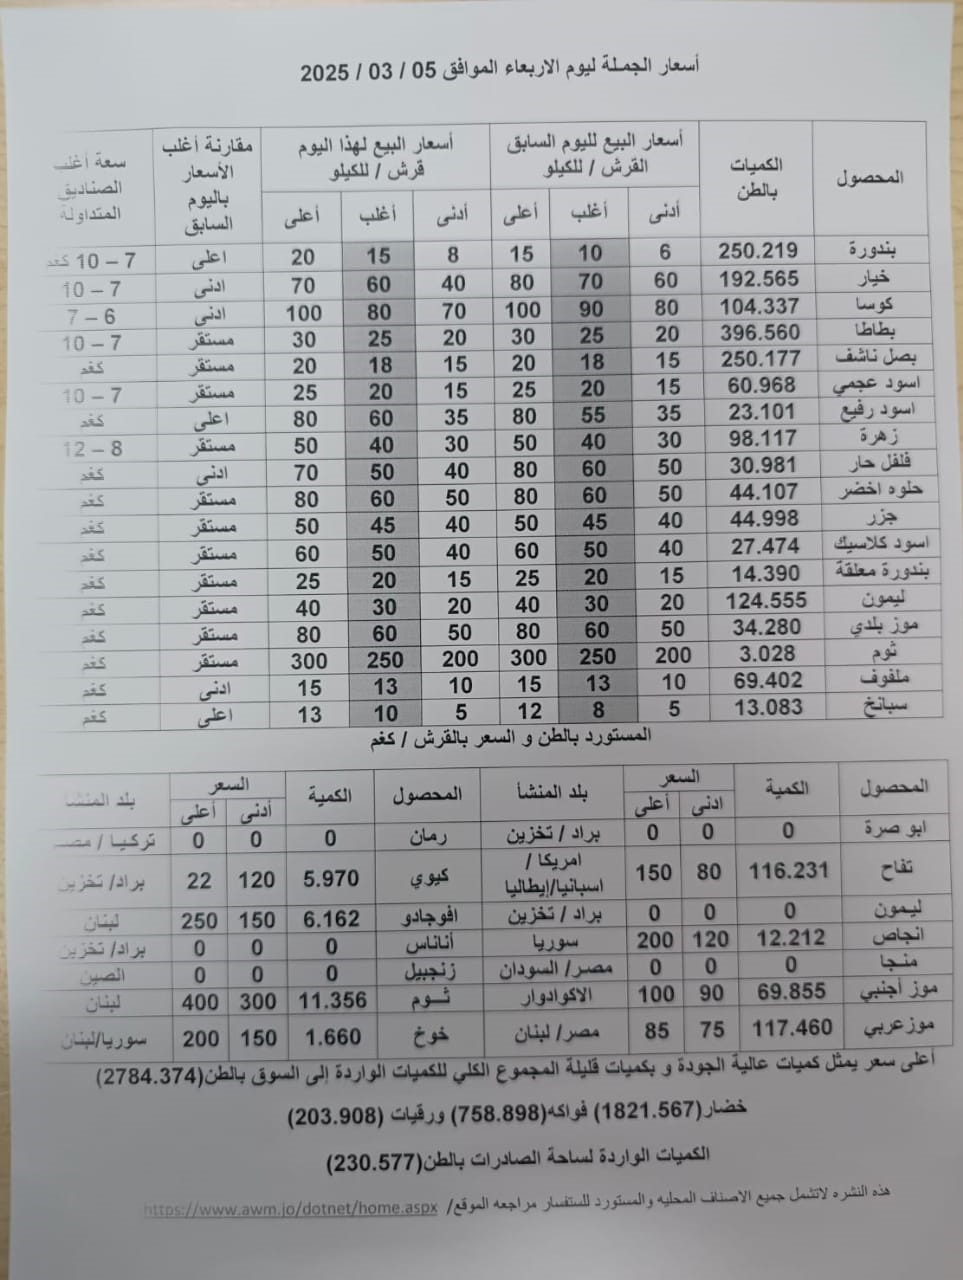 أسعار الجملة ليوم الاربعاء الموافق 05 / 03 / 2025
المحصول الكميات بالطن أسعار البيع لليوم السابق القرش / للكيلو أسعار البيع لهذا اليوم قرش / للكيلو مقارنة أغلب الأسعار باليوم السابق سعة أغلب الصناديق المتداولة
أدنى أغلب أعلى أدنى أغلب أعلى
بندورة 250.219 6 10 15 8 15 20 اعلى 7 – 10 كغم
خيار 192.565 60 70 80 40 60 70 ادنى 7 – 10
كوسا 104.337 80 90 100 70 80 100 أدنى 6 – 7
بطاطا 396.560 20 25 30 20 25 30 مستقر 7 – 10
بصل ناشف 250.177 15 18 20 15 18 20 مستقر كغم
اسود عجمي 60.968 15 20 25 15 20 25 مستقر 7 – 10
اسود رفيع 23.101 35 55 80 35 60 80 اعلى كغم
زهرة 98.117 30 40 50 30 40 50 مستقر 8 – 12
فلفل حار 30.981 50 60 80 40 50 70 ادنى كغم
حلوه اخضر 44.107 50 60 80 50 60 80 مستقر كغم
جزر 44.998 40 45 50 40 45 50 مستقر كغم
اسود كلاسيك 27.474 40 50 60 40 50 60 مستقر كغم
بندورة معلقة 14.390 15 20 25 15 20 25 مستقر كغم
ليمون 124.555 20 30 40 20 30 40 مستقر كغم
موز بلدي 34.280 50 60 80 50 60 80 مستقر كغم
ثوم 3.028 200 250 300 200 250 300 مستقر كغم
ملفوف 69.402 10 13 15 10 13 15 ادنى كغم
سبانخ 13.083 5 8 12 5 10 13 اعلى كغم
المستورد بالطن و السعر بالقرش / كغم
المحصول الكمية السعر بلد المنشأ المحصول الكمية السعر بلد المنشأ
ادنى أعلى أدنى أعلى
ابو صرة 0 0 0 براد / تخزين رمان 0 0 0 تركيا /
تفاح 116.231 80 150 امريكا / اسبانيا/إيطاليا كيوي 5.970 120 22 براد/ تخزين
ليمون 0 0 0 براد / تخزين افوجادو 6.162 150 250 لبنان
انجاص 12.212 120 200 سوريا أناناس 0 0 0 براد/ تخزين
منجا 0 0 0 مصر/ السودان زنجبيل 0 0 0 الصين
موز أجنبي 69.855 90 100 الاكوادوار ثـوم 11.356 300 400 لبنان
موزعربي 117.460 75 85 مصر/ لبنان خوخ 1.660 150 200 سوريا/لبنان
أعلى سعر يمثل كميات عالية الجودة و بكميات قليلة المجموع الكلي للكميات الواردة إلى السوق بالطن(2784.374)
خضار(1821.567) فواكه(758.898) ورقيات (203.908)
الكميات الواردة لساحة الصادرات بالطن(230.577)
هذه النشره لاتشمل جميع الاصناف المحليه والمستورد للستفسار مراجعه الموقع/ https://www.awm.jo/dotnet/home.aspx